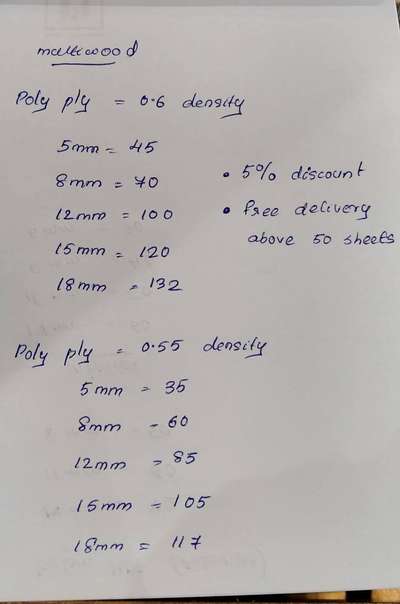 multiwood
Poly ply = 0.6 density
5mm = 45
8mm = 70
12mm = 100
15mm = 120
18mm = 132
• 5% discount
• free delivery
above 50 sheets
Poly ply = 0.55 density
5mm = 35
8mm = 60
12mm = 85
15mm = 105
18mm = 117